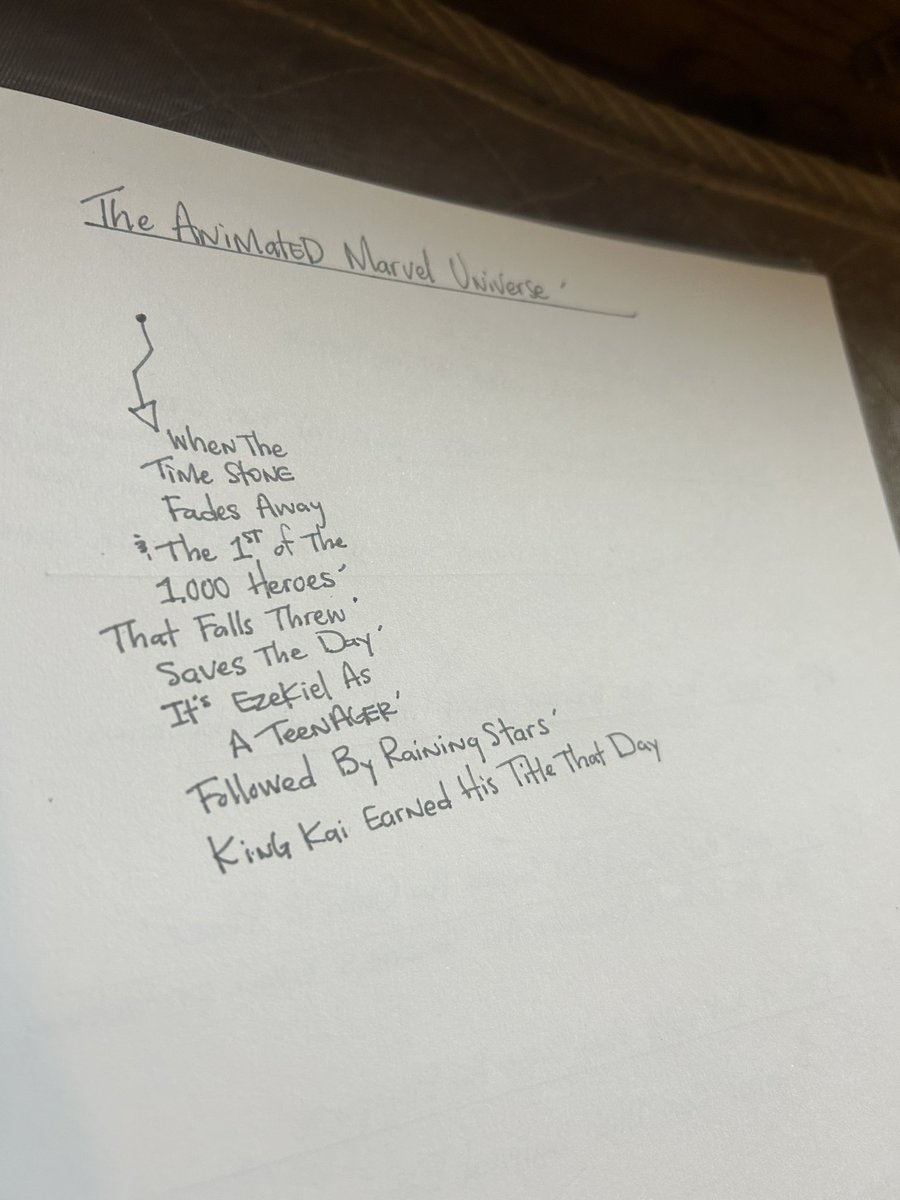 The Animated Marvel Universe'
When The
Time Stone
Fades Away
& The 1ST of The
1,000 Heroes'
That Falls Threw'
Saves The Day'
It's Ezekiel As
A Teenager'
Followed By Raining Stars'
King Kai Earned His Title That Day